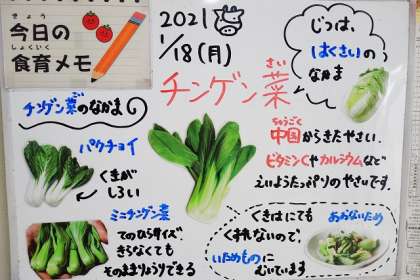 きょう
今日の
しょくいく
食育メモ
2021
1/18(月)
さい
チンゲン菜
じつは、
はくさいの
なかま
チンゲン菜のなかま
パクチョイ
くきが
しろい
ミニチンゲン菜
てのひらサイズ
きらなくても
そのままりょうりできる
ちゅうごく
中国からきたやさい。
ビタミンCやカルシウムなど
えいようたっぷりのやさいです。
くきはにても
くずれないので、
いためものに
むいています
あおないため